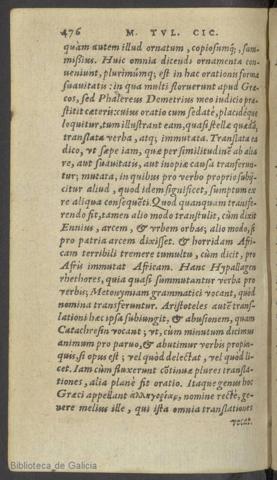 476 M. TVL. CIC.
quàm autem illud ornatum, copiosumq́;, sum-
missius. Huic omnia dicendi ornamenta con-
ueniunt, plurimúmq; est in hac orationis forma
suauitatis: in qua multi floruerunt apud Græ-
cos, sed Phalereus Demetrius meo iudicio præ-
stitit cæteris: cuius oratio cum sedatè, placidéque
loquitur, tum illustrant eam, quasi stellæ quædã,
translata verba, atq; immutata. Translata ea
dico, vt sæpe iam, quæ per similitudinẽ ab alia
re, aut suauitatis, aut inopiæ causa transferun-
tur; mutata, in quibus pro verbo proprio subij-
citur aliud, quod idem significet, sumptum ex
re aliqua consequẽti. Quod quanquam transfe-
rendo fit, tamen alio modo transtulit, cùm dixit
Ennius, arcem, & vrbem orbas; alio modo, si
pro patria arcem dixisset. & horridam Afri-
cam terribili tremere tumultu, cùm dicit, pro
Afris immutat Africam. Hanc Hypallagen
rhethores, quia quasi summutantur verba pro
verbis; Metonymiam grammatici vocant, quòd
nomina transferuntur. Aristoteles autẽ trans-
lationi hæc ipsa subiungit, & abusionem, quam
Catachresin vocant; vt, cùm minutum dicimus
animum pro paruo, & abutimur verbis propin-
quis, si opus est; vel quòd delectat, vel quòd li-
cet. Iam cùm fluxerunt cõtinuæ plures transla-
tiones, alia planè fit oratio. Itaque genus hoc
Græci appellant ἀλληγορίαν, nomine rectè, ge-
nere melius ille, qui ista omnia translationes
vocat.
Biblioteca de Galicia